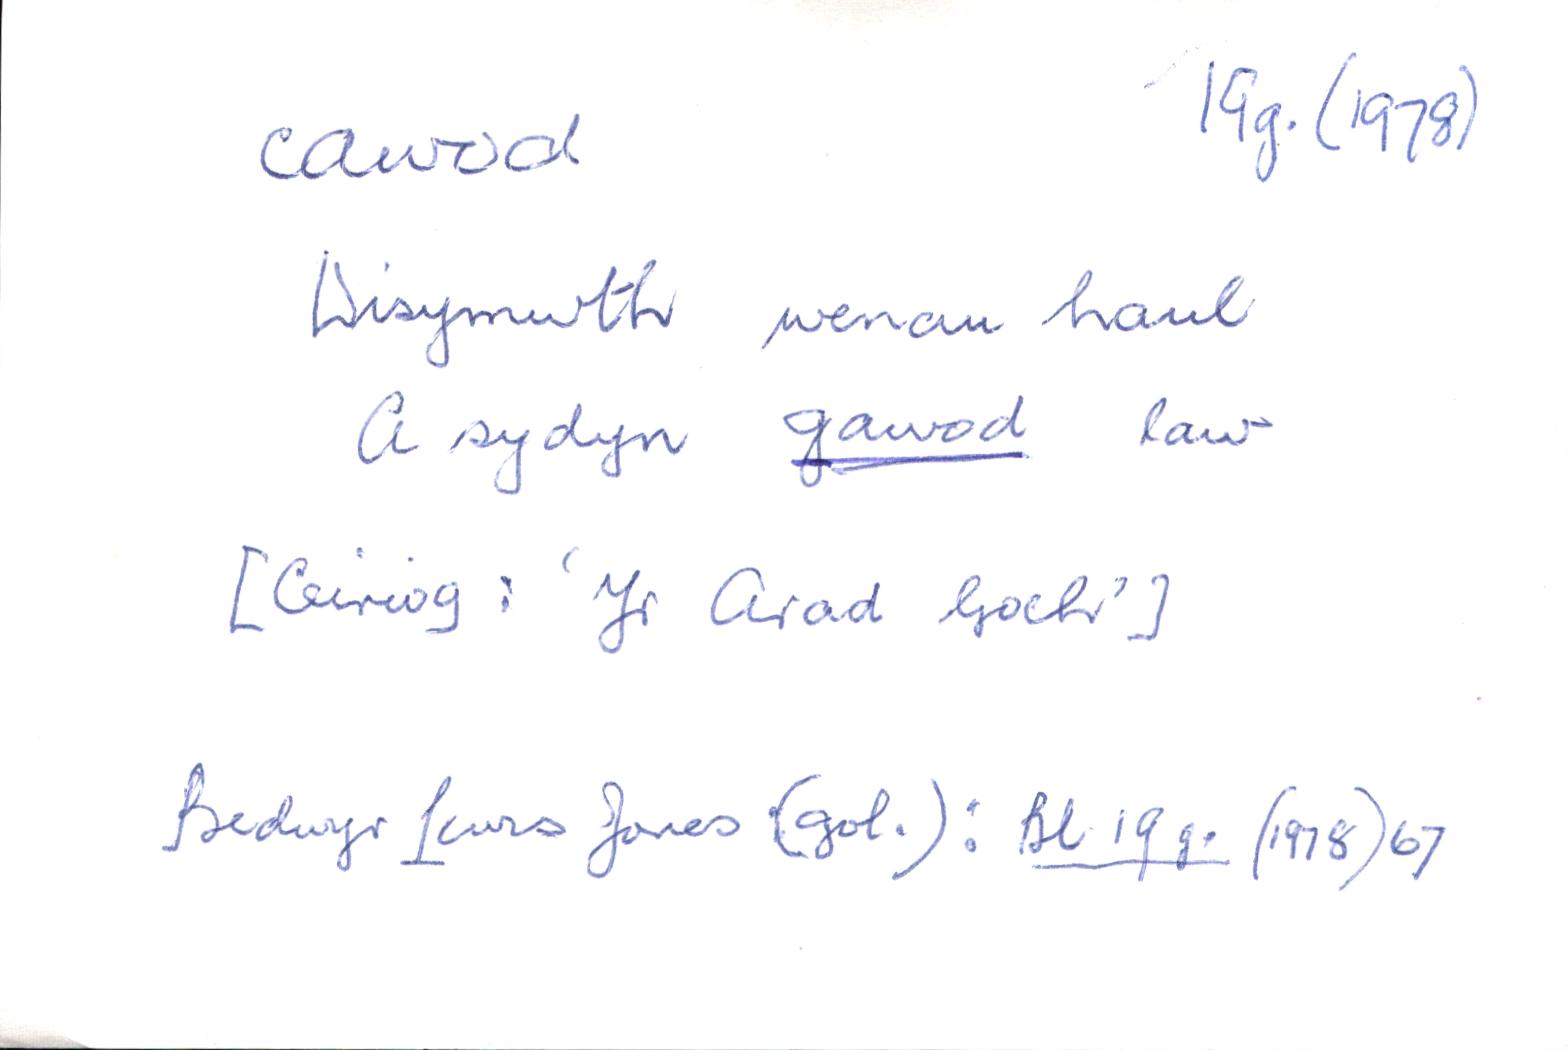 cawod 19g. (1978)
Disymwth wenau haul
A sydyn gawod law
[Ceiriog : 'Yr Arad Goch']
Bedwyr Lewis Jones (gol.) : Bl 19g. (1978) 67